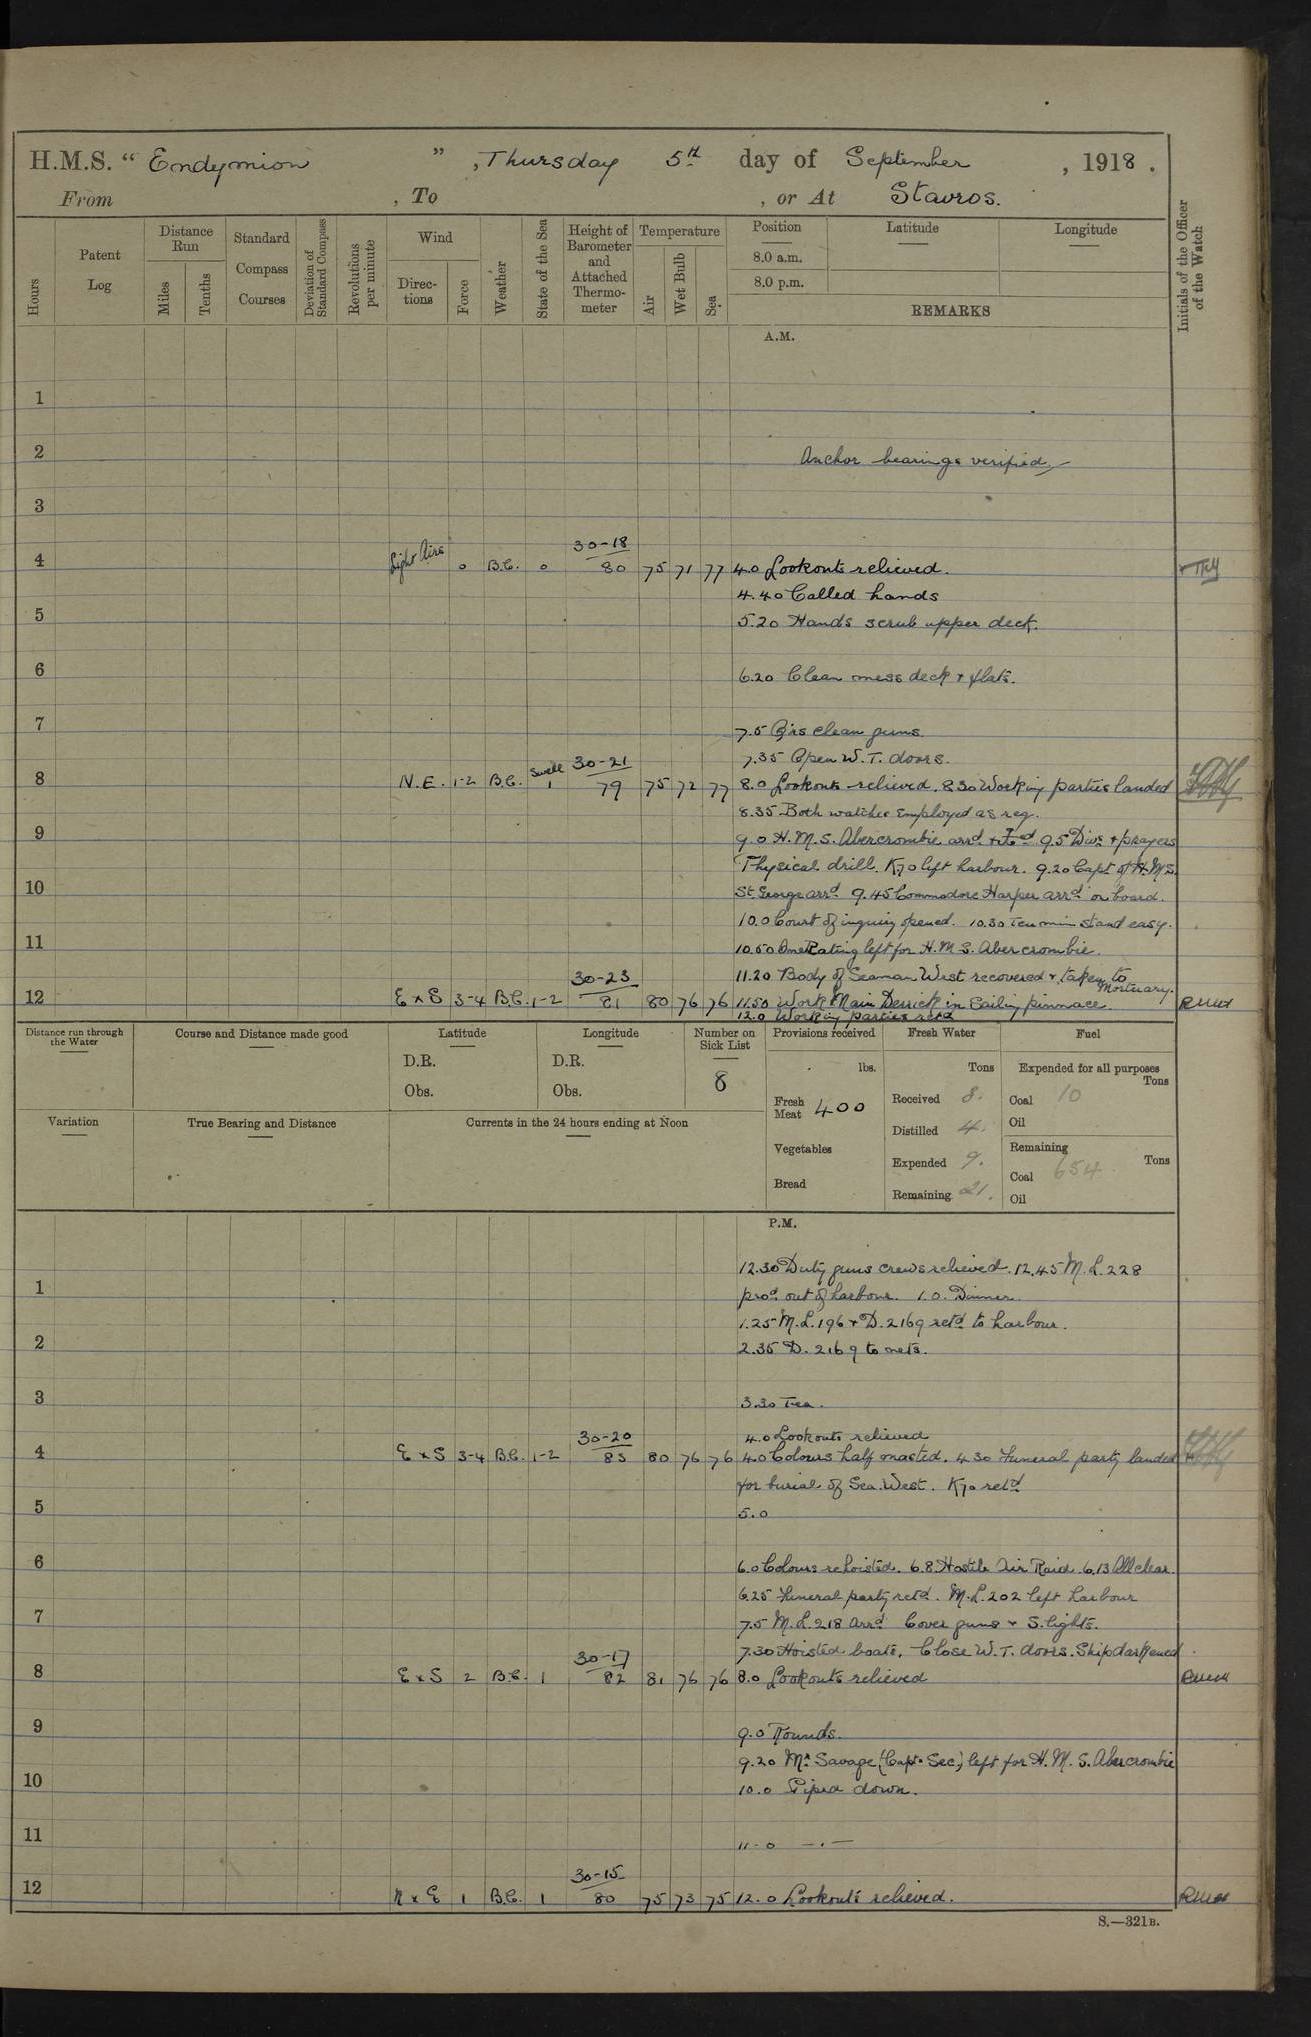 H.M.S. “ Endymion ” , Thursday 5th day of September , 1918 .
From , To , or At Stavros.
Hours
Patent Log
Distance Run
Miles
Tenths
Standard Compass Courses
Deviation of Standard Compass
Revolutions per minute
Wind
Direc-tions
Force
Weather
State of the Sea
Height of Barometer and Attached Thermo-meter
Temperature
Air
Wet Bulb
Sea
Position
8.0 a.m.
8.0 p.m.
Latitude
Longitude
REMARKS
Initials of the Officer of the Watch
A.M.
1
2 Anchor bearings verified
3
30-18
4 Light Airs 0 B.C. 0 80 75 71 77 4.0 Lookouts relieved.
4.40 Called hands
5 5.20 Hands scrub upper deck.
6 6.20 Clean mess deck + flats.
7 7.5 Qrs clean guns.
Swell 30-21 7.35 Open W.T. doors.
8 N.E. 1-2 B.C. 1 79 75 72 77 8.0 Lookouts relieved. 8.30 Working parties landed
8.35 Both watches employed as req.
9 9.0 H.M.S. Abercrombie arrd 9.5 Divs + prayers
Physical drill. K70 left harbour. 9.20 Capt of H.M.S.
10 St. George arrd 9.45 Commodore Harper arrd on board.
10.0 Court of inquiry opened. 10.30 Ten min stand easy.
11 10.50 One Rating left for H.M.S. Abercrombie.
30-23 11.20 Body of Seaman West recovered + taken to Mortuary.
12 E x S 3-4 B.C. 1-2 81 80 76 76 11.50 Work Main Derrick in Sailing pinnace.
12.0 Working parties retd
Distance run through the Water
Course and Distance made good
Latitude
D.R.
Obs.
Longitude
D.R.
Obs.
Number on Sick List
8
Provisions received
lbs.
Fresh Meat 400
Vegetables
Bread
Fresh Water
Tons
Received 8.
Distilled 4.
Expended 9.
Remaining 21.
Fuel
Expended for all purposes
Tons
Coal 10
Oil
Remaining
Tons
Coal 654
Oil
Variation
True Bearing and Distance
Currents in the 24 hours ending at Noon
P.M.
12.30 Duty guns crews relieved. 12.45 M.L.228
1 procd out of harbour. 1.0. Dinner.
1.25 M.L.196 + D.2169 retd to harbour.
2 2.35 D. 2169 to nets.
3 3.30 Tea.
30-20 4.0 Lookouts relieved
4 E x S 3-4 B.C. 1-2 83 80 76 76 4.0 Colours half masted. 4.30 Funeral party landed
for burial of Sea. West. K70 retd
5 5.0
6 6.0 Colours rehoisted. 6.8 Hostile Air Raid. 6.13 All clear.
6.25 Funeral party retd. M.L.202 left harbour
7 7.5 M.L.218 arrd Cover guns + S.lights.
30-17 7.30 Hoisted boats, Close W.T. doors. Ship darkened
8 E x S 2 B.C. 1 82 81 76 76 8.0 Lookouts relieved
9 9.0 Rounds.
9.20 Mr Savage (Capt. Sec) left for H.M.S. Abercrombie
10 10.0 Piped down.
11 11-0 — . —
30-15
12 N x E 1 B.C. 1 80 75 73 75 12.0 Lookouts relieved.
S.—321B.